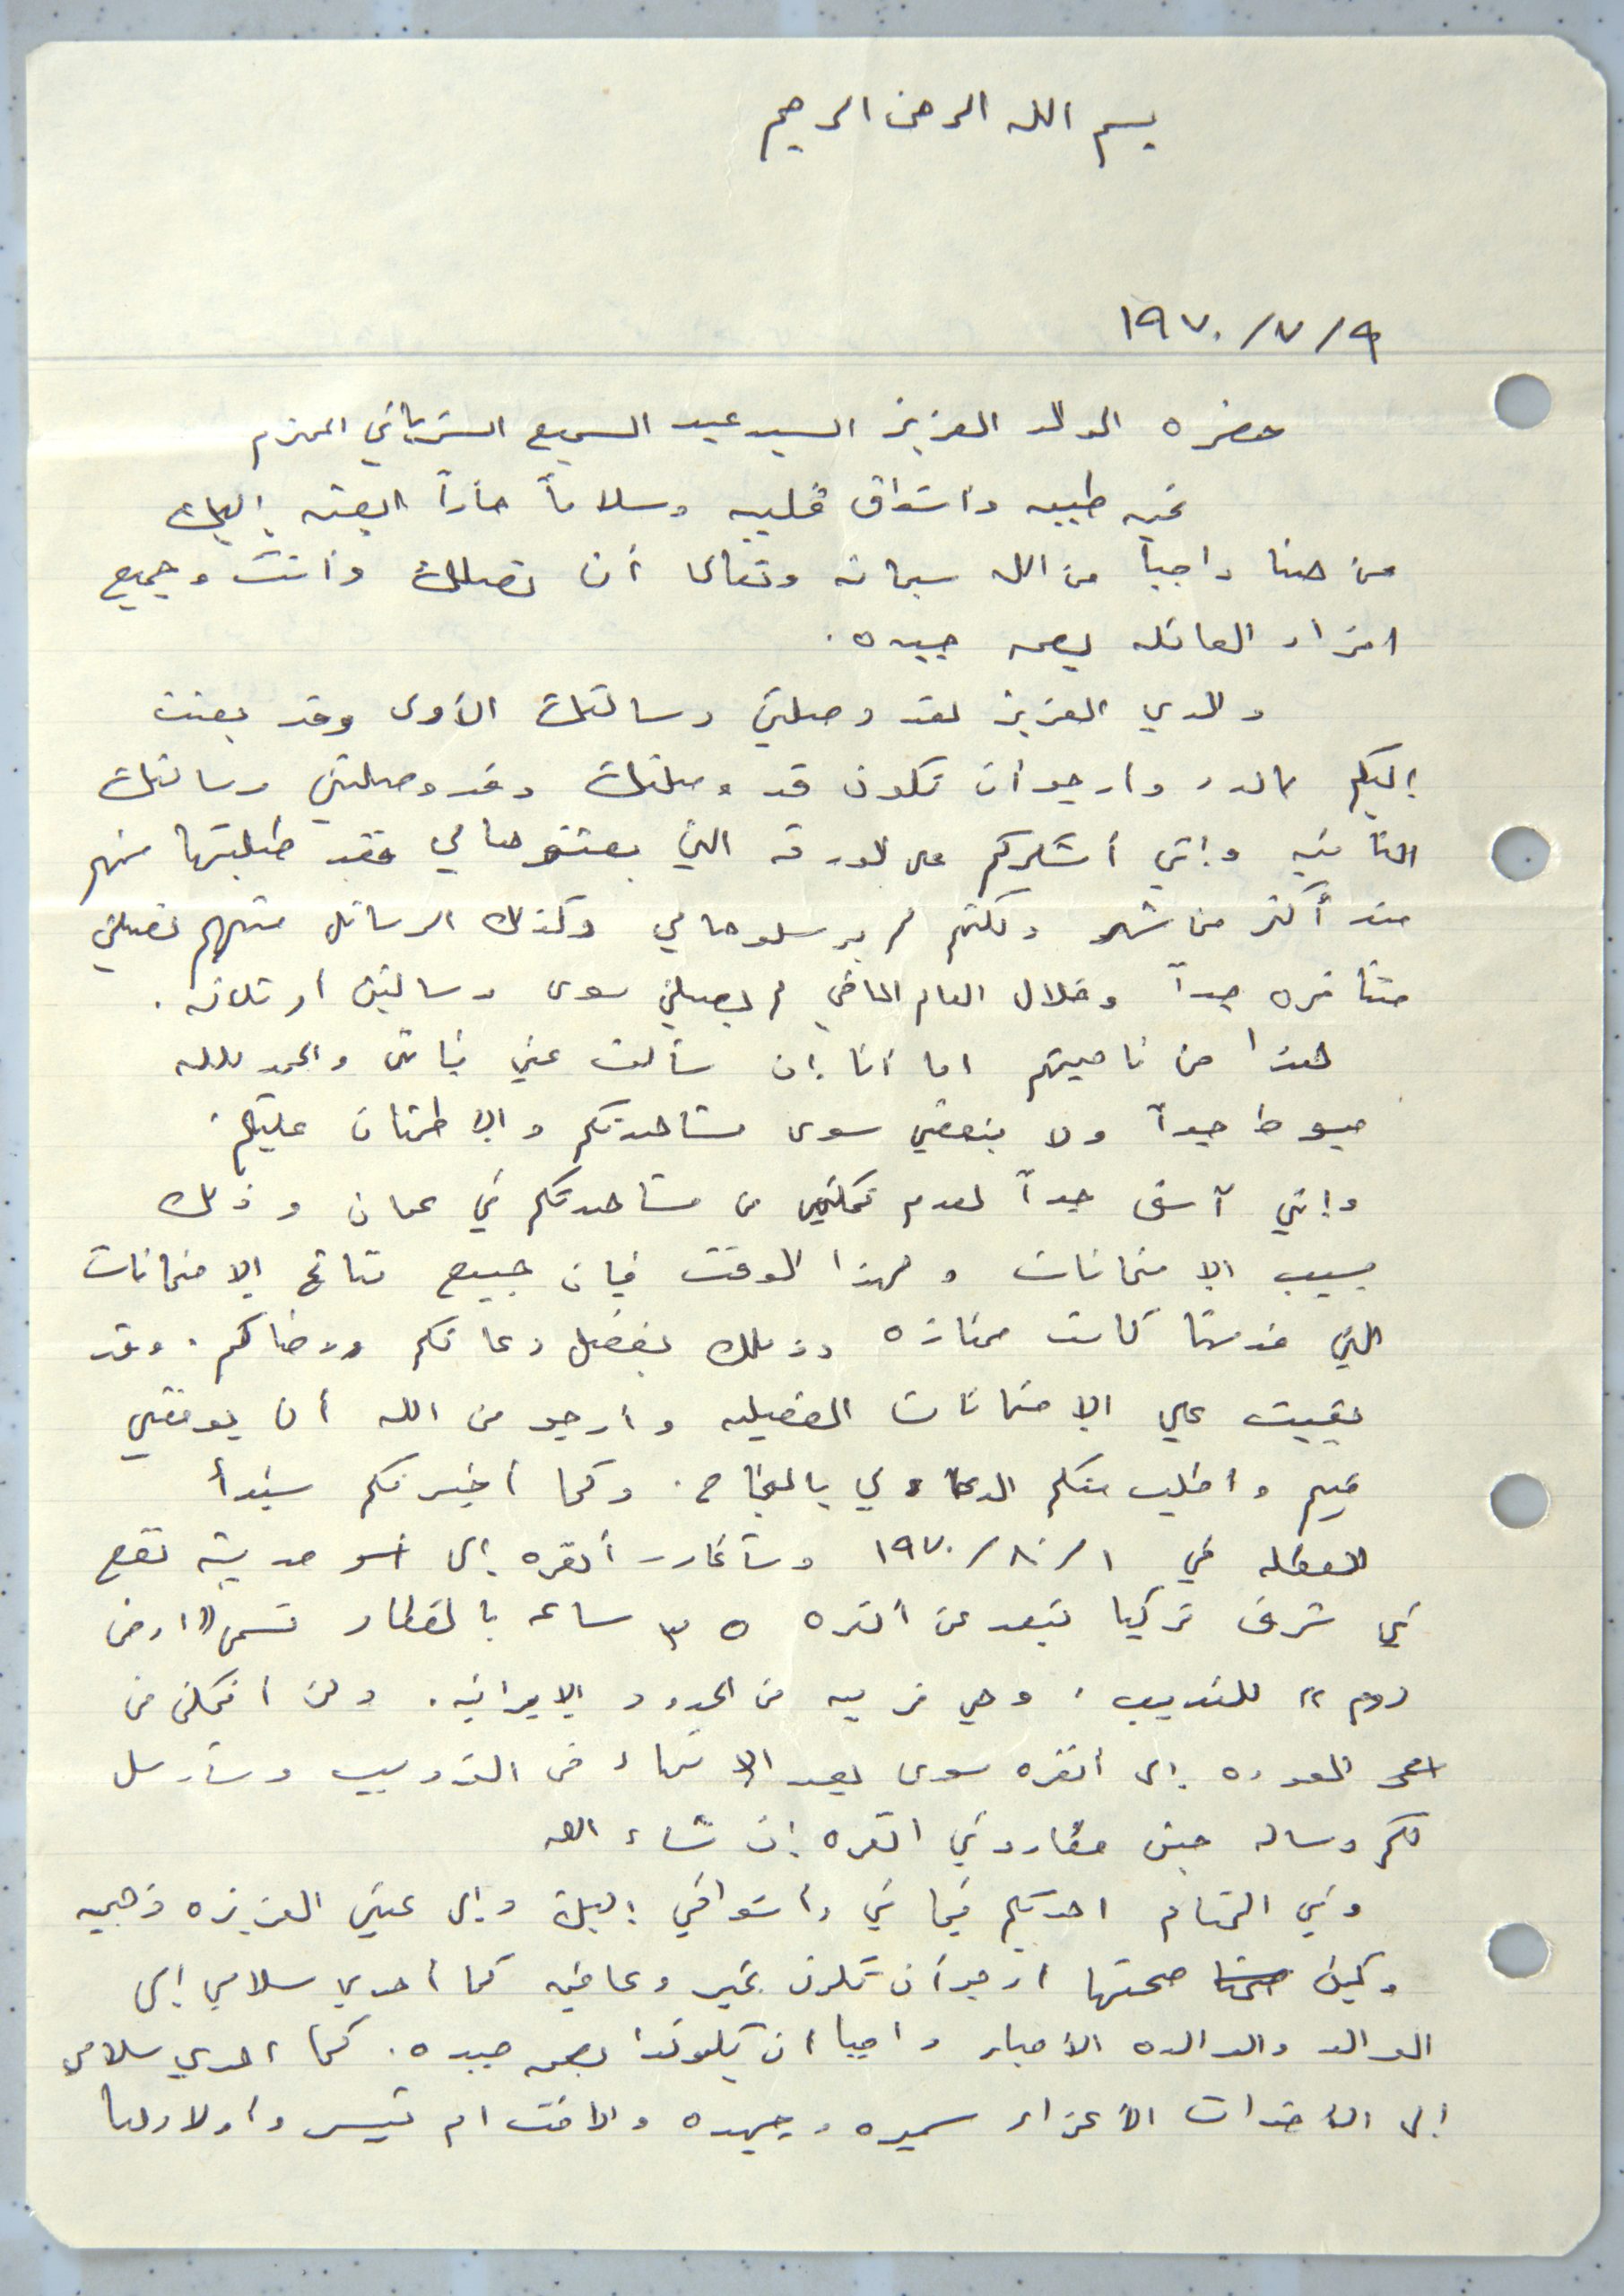 بسم الله الرحمن الرحيم
١٩٧٠/٧/٩
حضره الوالد العزيز السيد عبد السميع المحترم
تحيه طيبه واشواق قلبيه وسلاماً حاراً ابعثه إليك
من هنا راجياً من الله سبحانه وتعالى أن تصلك وأنت وجميع
افراد العائله بصحه جيده.
والدي العزيز لقد وصلتني رسالتك الأولى وقد بعثت
إليكم بالرد وارجو ان تكون قد وصلتك وقد وصلتني رسالتك
الثانيه وإني أشكركم على الورقه التي بعثتموها لي فقد طلبتها منهم
منذ أكثر من شهر ولكنهم لم يرسلوها لي وكذلك الرسائل منهم تصلني
متأخره جداً وخلال العام الماضي لم يصلني سوى رسالتين أو ثلاثه.
هذا من ناحيتهم اما انا إن سألت عني فإنني والحمد لله
مبسوط جداً ولا ينقصني سوى مشاهدتكم والإطمئنان عليكم.
وإني آسف جداً لعدم تمكني من مشاهدتكم في عمان وذلك
بسبب الامتحانات ولهذا الوقت فإن جميع نتائج الإمتحانات
التي قدمتها كانت ممتازه وذلك بفضل دعائكم ورضاكم. وقد
بقيت علي الإمتحانات الفصليه وأرجو من الله أن يوفقني
فيهم واطلب منكم الدعاء لي بالنجاح. وكما أخبرتكم ستبدأ
العطله في ١٩٧٠/٨/١ وسأغادر أنقره إلى مدينة تقع
في شرق تركيا تبعد عن أنقره ٣٥ ساعه بالقطار تسمى «ارض
روم» للتدريب. وهي قريبه من الحدود الإيرانيه. ولن اتمكن من
العوده إلى أنقره سوى بعد الانتهاء من التدريب وسأرسل
لكم رساله حين مغادرتي انقره إن شاء الله
وفي الختام اهديكم تحياتي وأشواقي إليك وإلى عمتي العزيزه فهميه
وكيف صحتها ارجو أن تكون بخير وعافيه كما أهدي سلامي إلى
الوالد والوالده الأحباء راجيا ان يكونوا بصحه جيده. كما اهدي سلامي
إلى الأخوات الأعزاء سميره و والاخت ام تيسير وأولادها